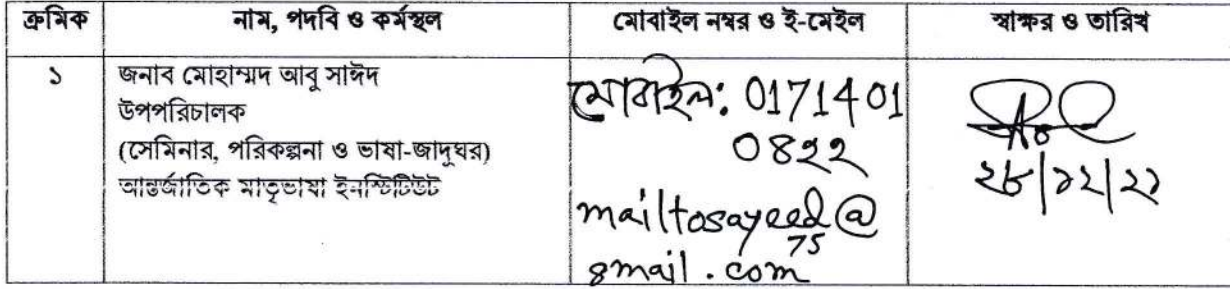 ক্রমিক নাম, পদবি ও কর্মস্থল মোবাইল নম্বর ও ই-মেইল স্বাক্ষর ও তারিখ
১ জনাব মোহাম্মদ আবু সাঈদ
উপপরিচালক
(সেমিনার, পরিকল্পনা ও ভাষা-জাদুঘর)
আন্তর্জাতিক মাতৃভাষা ইনস্টিটিউট
মোবাইল: 0171401
0822
mailtosayeed@
75
gmail.com
২৮/১২/২১